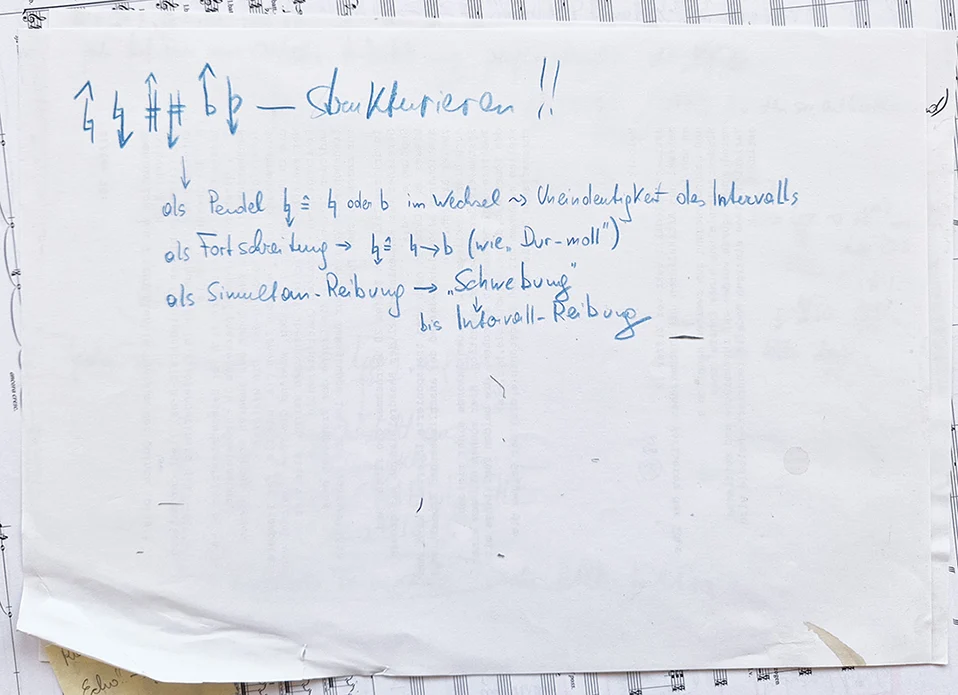 ♮↑ ♮↓ ♯↑ ♯↓ ♭↑ ♭↓ — strukturieren !!
↓
als Pendel ♮↓ ≙ ♮ oder b im Wechsel ~> Uneindeutigkeit des Intervalls
als Fortschreitung → ♮↓ ≙ ♮→b (wie „Dur-moll")
als Simultan-Reibung → „Schwebung"
↓
bis Intervall-Reibung
Echo"